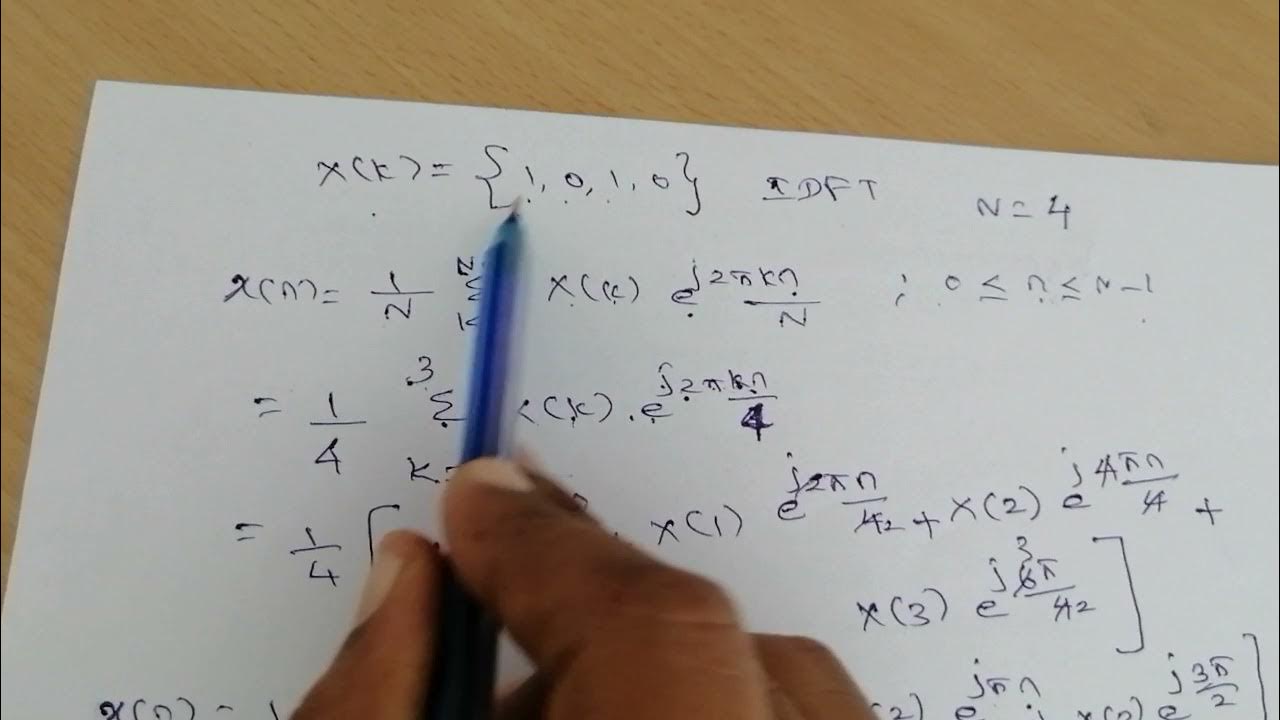 X(K) = {1, 0, 1, 0} IDFT N = 4
x(n) = 1/N Σ X(K) e^j2πKn/N ; 0 ≤ n ≤ N-1
= 1/4 3 Σ K= X(K) . e^j2πkn/4
= 1/4 [ X(1) e^j2πn/42 + X(2) e^j4πn/4 +
X(3) e^j3 6π/42 ]
x(n) = 1 (2) e^jπn + X(3) e^j3π/2 ]